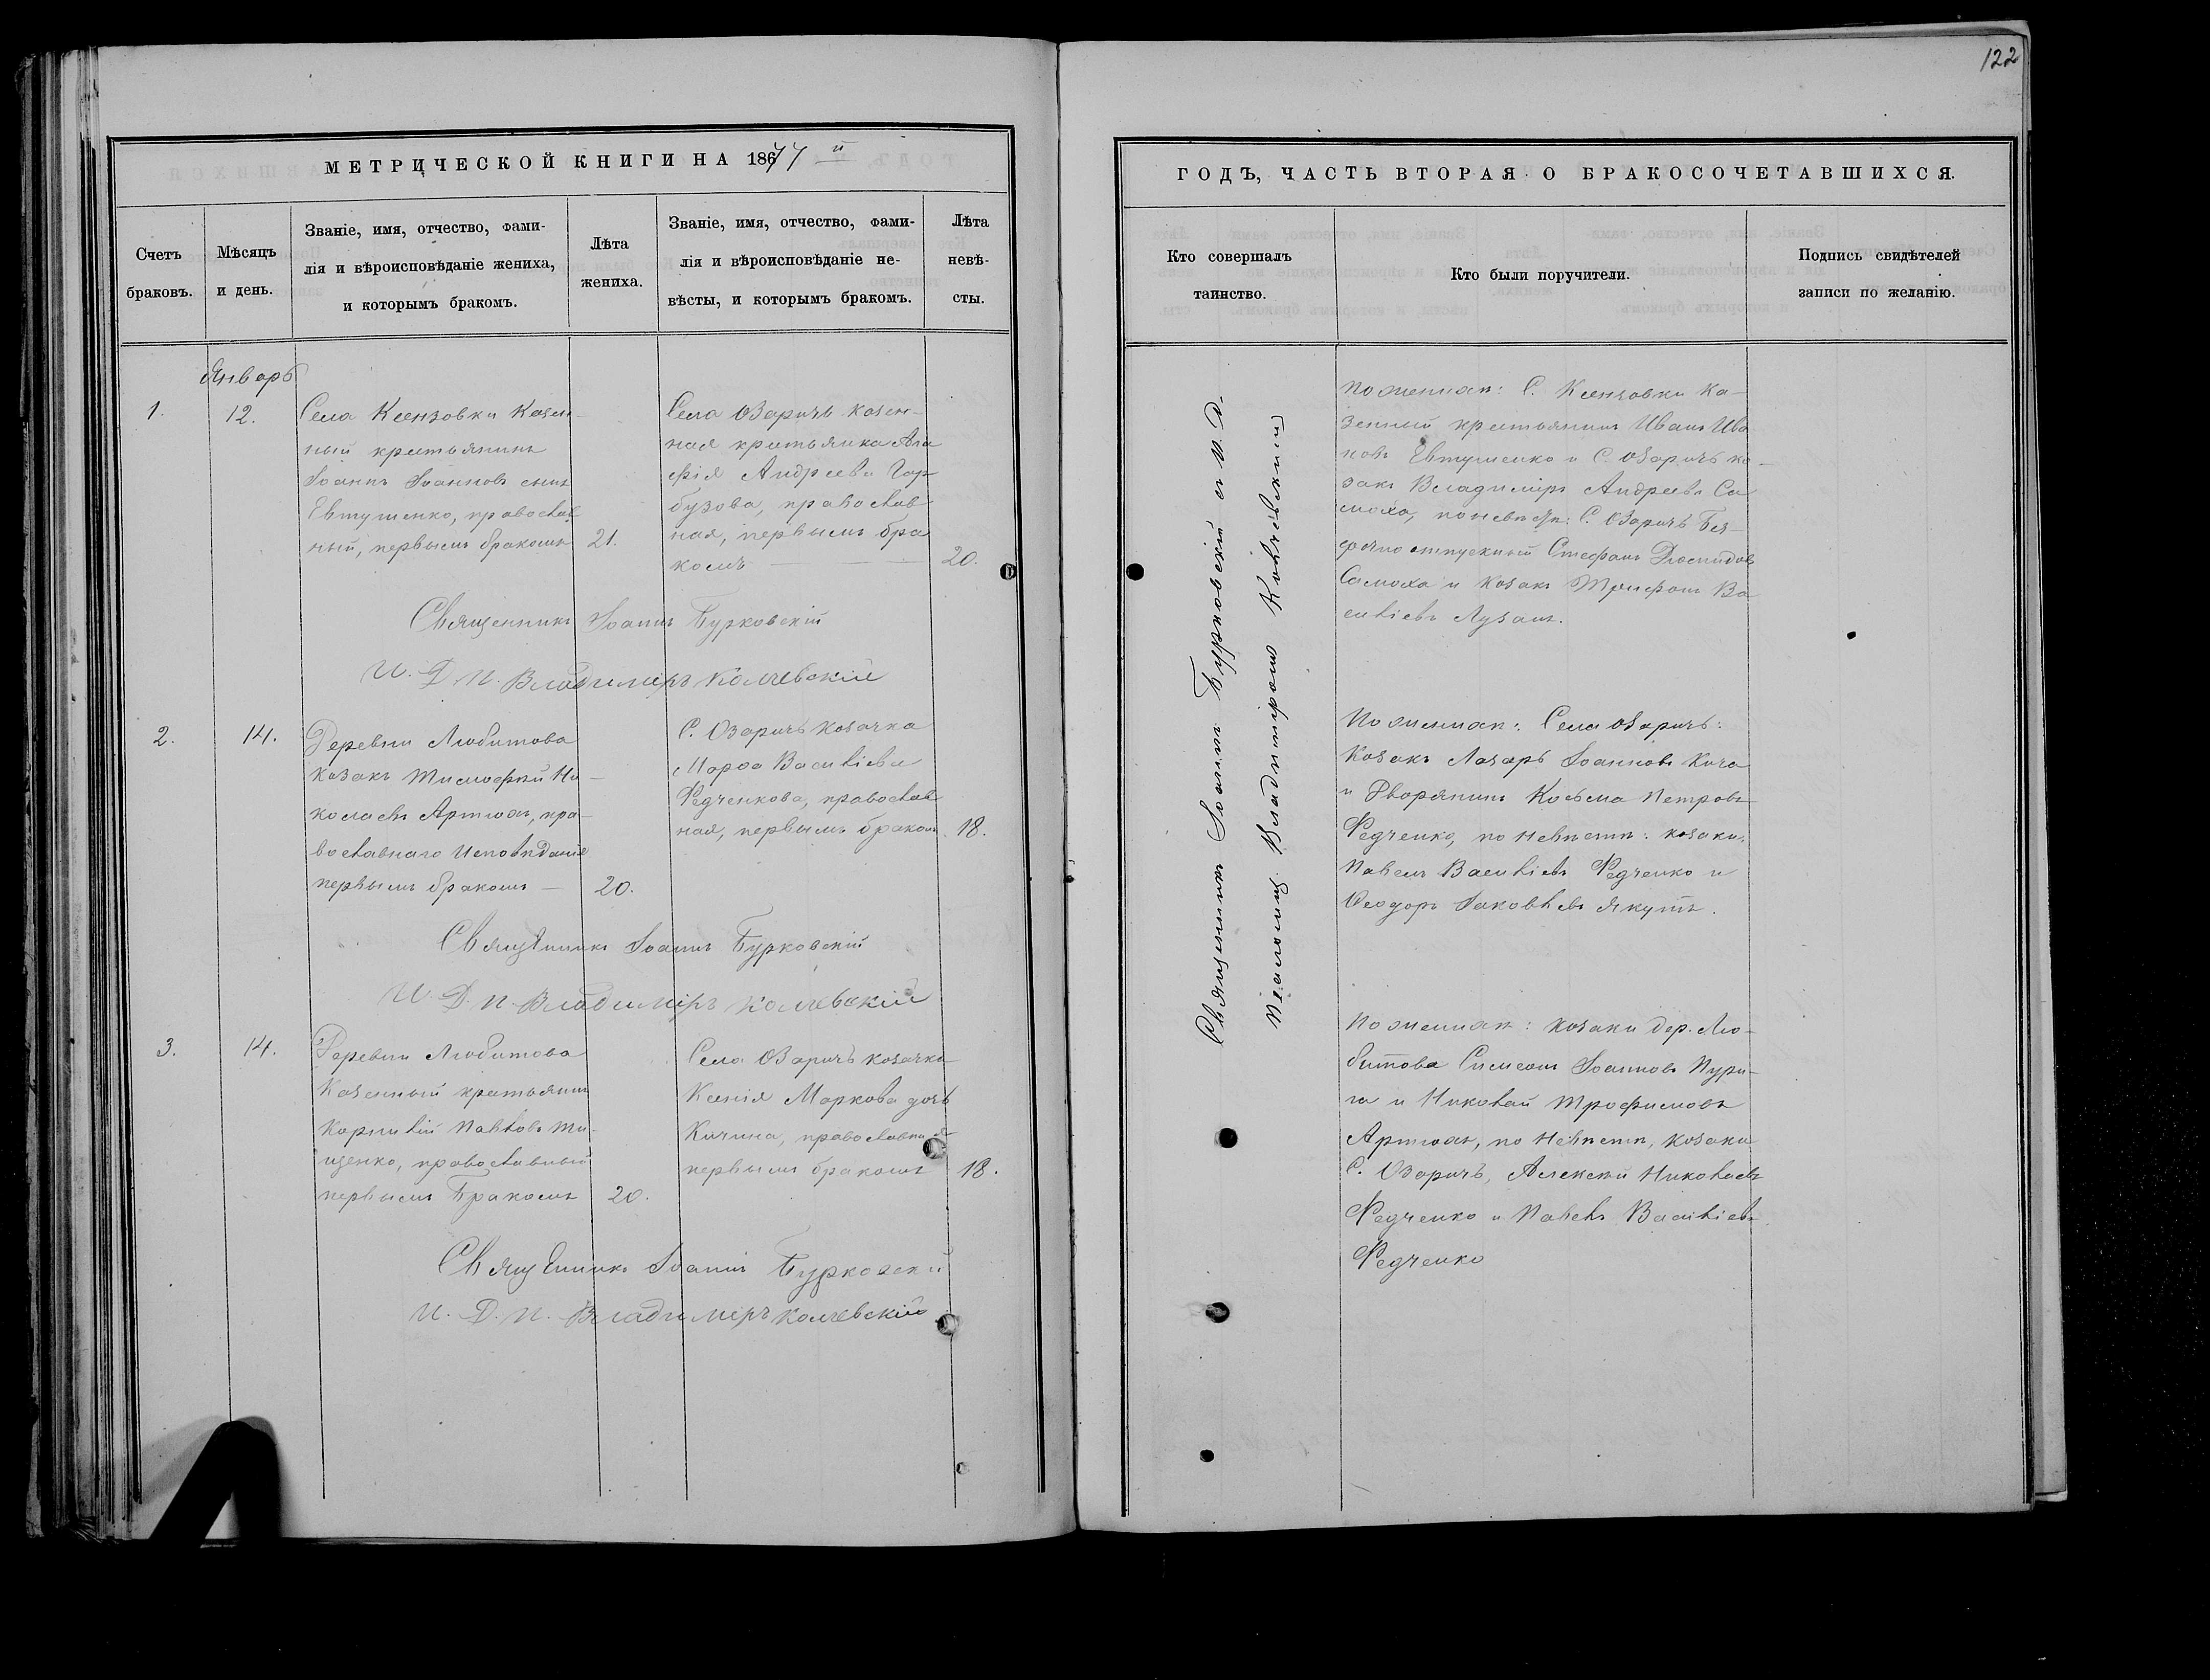 122
МЕТРИЧЕСКОЙ КНИГИ НА 1877 й
Счетъ
браковъ.
Мѣсяцъ
и день.
Званіе, имя, отчество, фами-
лія и вѣроисповѣданіе жениха,
и которымъ бракомъ.
Лѣта
жениха.
Званіе, имя, отчество, фами-
лія и вѣроисповѣданіе не-
вѣсты, и которымъ бракомъ.
Лѣта
невѣ-
сты.
Январь
1.
12.
Села Ксензовки Казен-
ный крестьянинъ
Іоаннъ Іоанновъ сынъ
Евтушенко, православ
ный, первымъ бракомъ
21.
Села Озаричъ козен-
ная крестьянка Ага
фія Андреева Гар
бузова, православ
ная, первымъ бра
комъ
20.
Священникъ Іоаннъ Бурковскій
И. Д. П. Владиміръ
2.
14.
Деревни Любитова
козакъ Тимофей Ни-
колаевъ Артюхъ, пра-
вославнаго исповѣданія
первымъ бракомъ —
20.
С. Озаричъ козачка
Марѳа Василіева
Федченкова, православ
ная, первымъ браком.
18.
Священникъ Іоаннъ Бурковскій
И. Д. П. Владиміръ
3.
14.
Деревни Любитова
Казенный крестьянин
Корнилій Павловъ Ти-
щенко, православный
первымъ Бракомъ
20.
Села Озаричъ козачка
Ксенія Маркова дочь
Кичина, православная
первымъ бракомъ
18.
Священникъ Іоаннъ Бурковскій
И. Д. П. Владиміръ
ГОДЪ, ЧАСТЬ ВТОРАЯ О БРАКОСОЧЕТАВШИХСЯ.
Кто совершалъ
таинство.
Кто были поручители.
Подпись свидѣтелей
записи по желанію.
Священникъ Іоаннъ Бурковскій съ И. Д.
Псаломщ. Владиміромъ
По женихѣ: С. Ксензовки Ка-
зенный крестьянинъ Иванъ Ива
новъ Евтушенко и С. Озаричъ ко-
закъ Владиміръ Андреевъ Са
моха, по невѣстѣ: С. Озаричъ Без-
срочно отпускный Стефанъ Діомидовъ
Самоха и козакъ Трифонъ Ва
силіевъ Лузанъ.
По женихѣ: Села Озаричъ:
козакъ Лазарь Іоанновъ Кича
и Дворянинъ Косьма Петровъ
Федченко, по невѣстѣ: козаки,
Павелъ Василіевъ Федченко и
Ѳеодоръ Іаковлевъ Якутъ.
По женихѣ: козаки дер. Лю-
битова Симеонъ Іоанновъ Пури-
га и Николай Трофимовъ
Артюхъ, по невѣстѣ, козаки
С. Озаричъ, Алексѣй Николаевъ
Федченко и Павелъ Василіевъ
Федченко